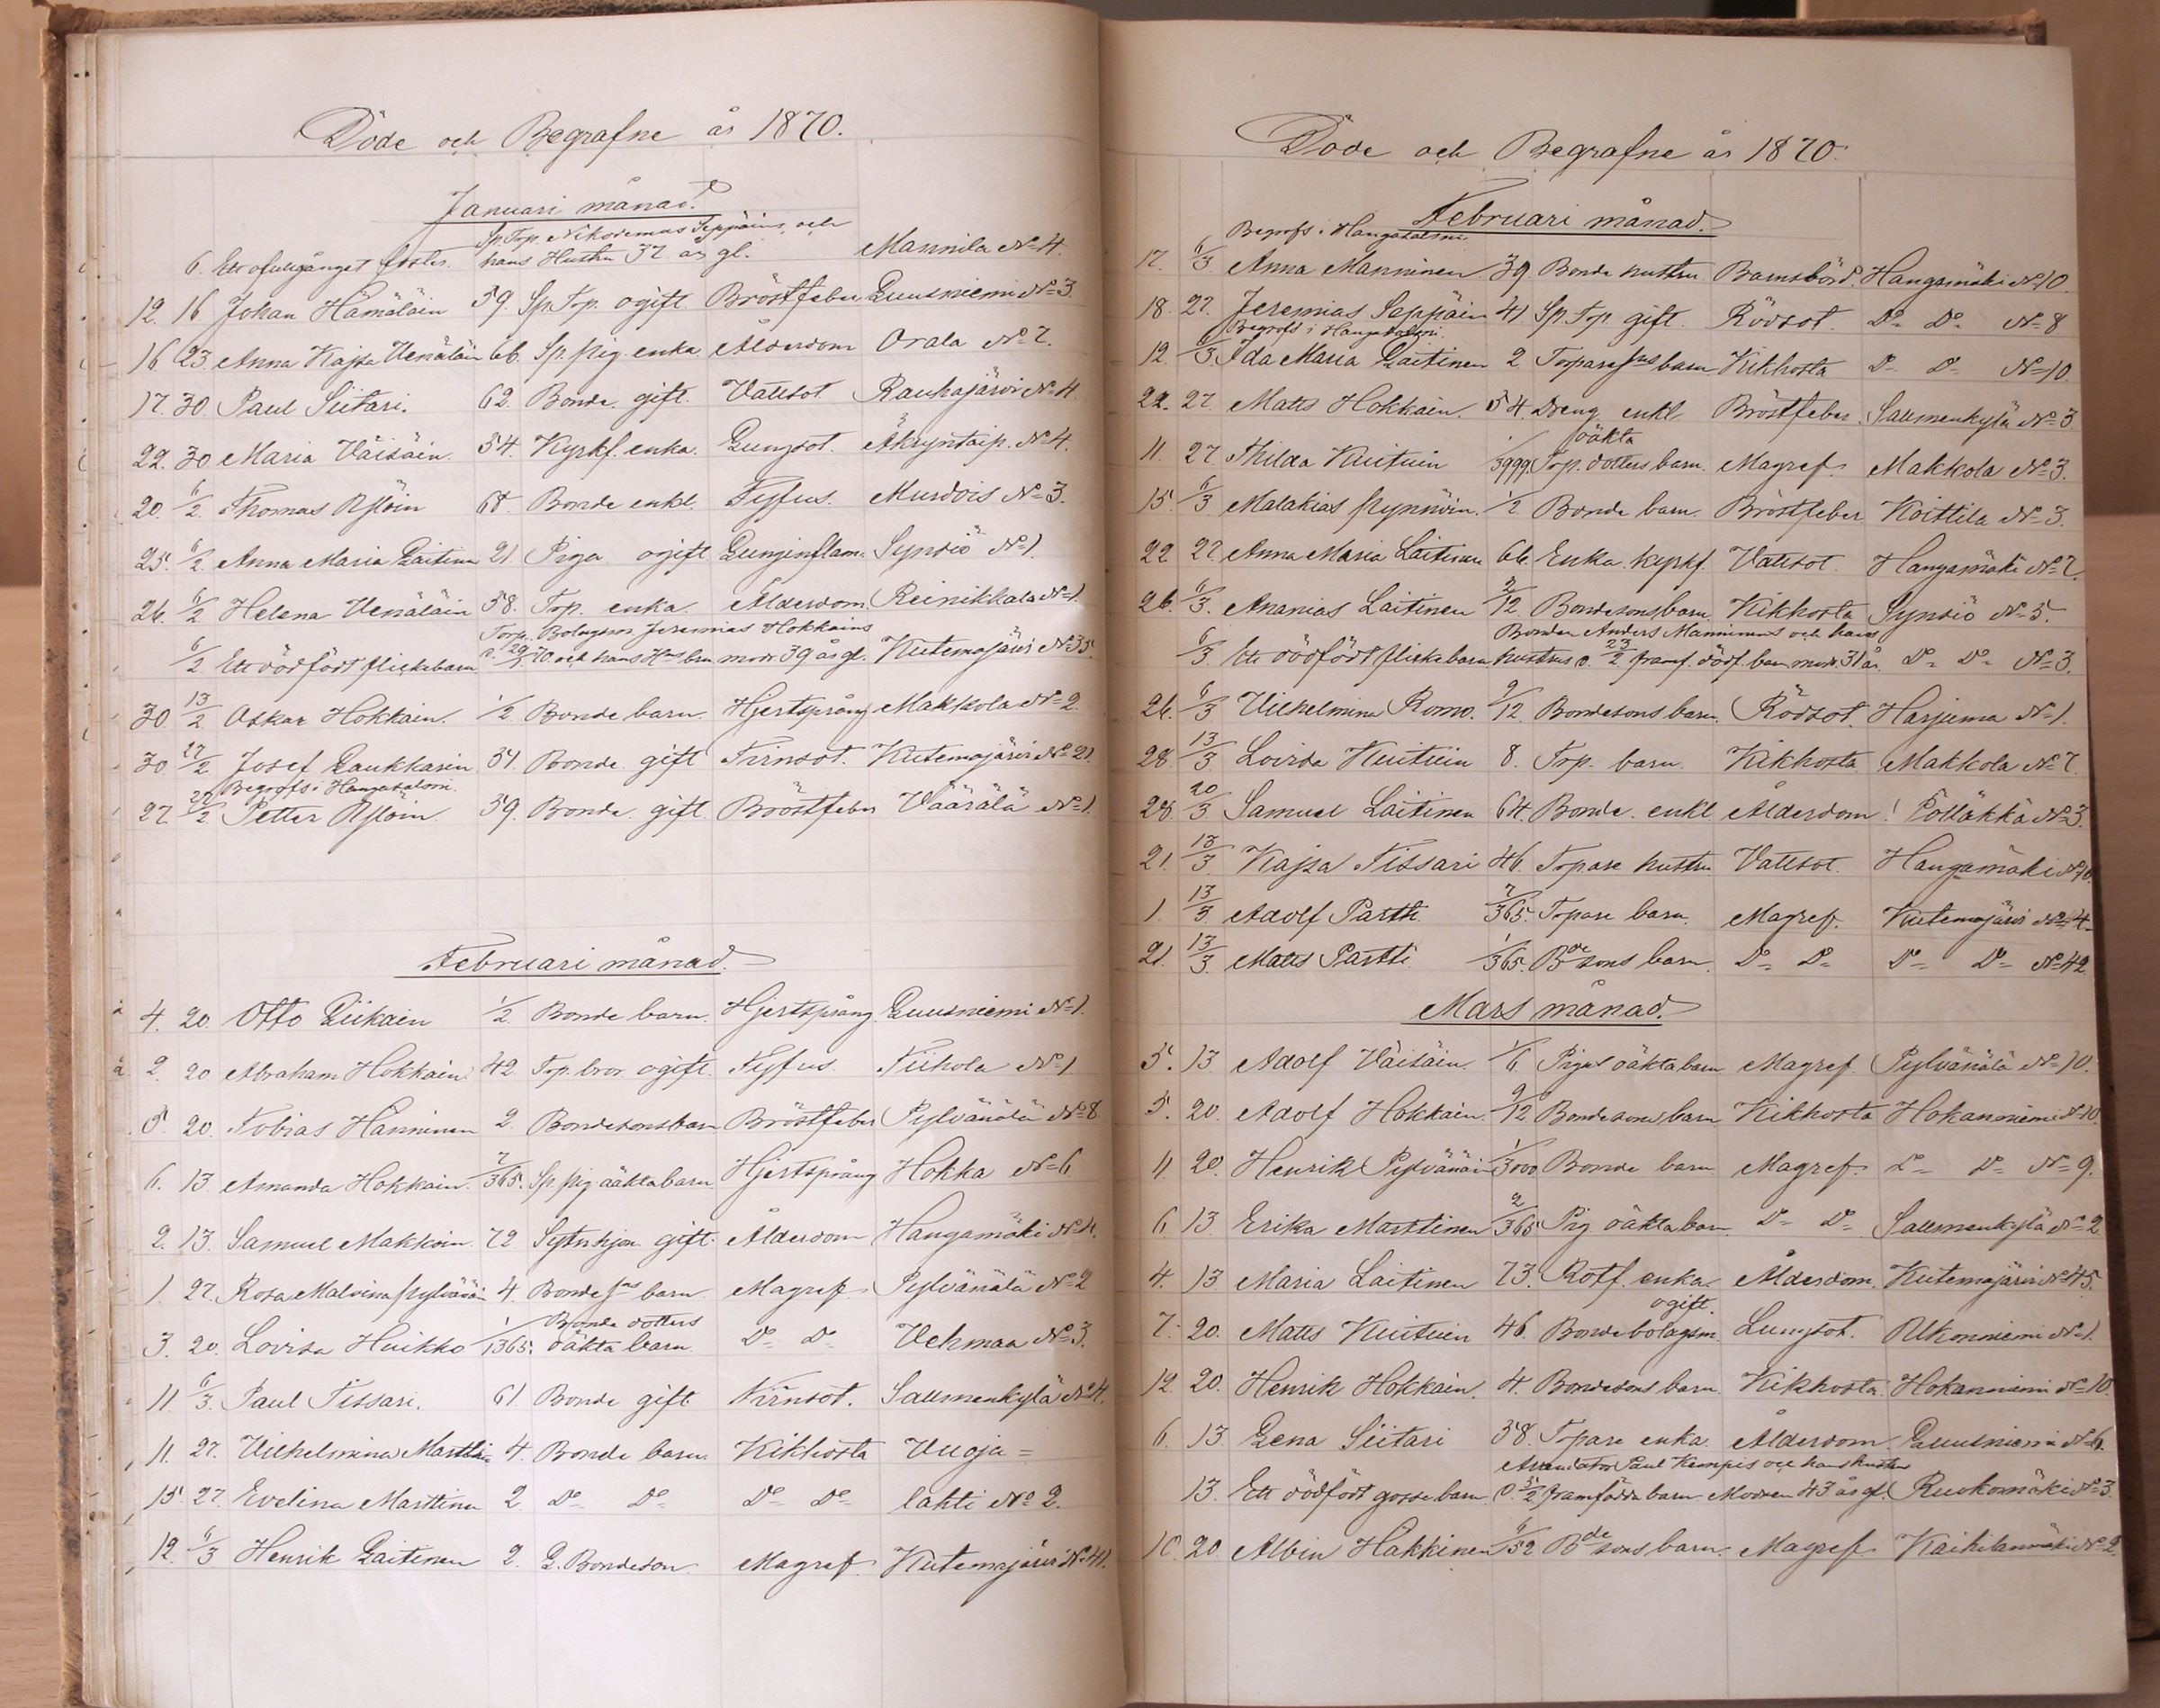 Döde och Begrafne år 1870.
Januari månad.
Sp. Torp. Nikodemus Seppäins och
6. Ett ofullgånget foster. hans Hustru 37 år gl. Mannila No 4.
12. 16 Johan Hämäläin 59. Sp. Torp. ogift Bröstfeber Luusniemi No 3.
16 23. Anna Kajsa Venäläin 66. Sp. pig. enka Ålderdom Orala No 7.
17. 30. Paul Siitari. 62. Bonde. gift. Vattsot Rauhajärvi No 4.
22. 30 Maria Väisäin. 54. Kyrkf. enka. Lungsot. No 4.
20. 6/2. Thomas 68. Bonde enkl. Tyfus. Murdois No 3.
25. 6/2. Anna Maria Laitinen 21. Piga ogift Lunginflam. Syvsiö No 1.
26. 6/2 Helena Venäläin 58. Torp. enka Ålderdom. Reinikkala No 1.
Torp. Bolagsm Jeremias Hokkains
6/2 Ett dödfödt flickebarn modr 39 år gl. Kutemajärvi No 35.
30 13/2 Oskar Hokkain. 1/2 Bonde barn. Hjertsprång Makkola No 2.
30 27/2 Josef Laukkarin 31. Bonde gift Tvinsot. Kutemajärvi No 21.
Begrofs i Hangasalmi.
27 27/2 Petter 39. Bonde gift Bröstfeber Väärälä No 1.
Februari månad.
4. 20. Otto Liikain 1/2. Bonde barn. Hjertsprång. Luusniemi No 1.
2. 20 Abraham Hokkain 42 Torp. bror ogift. Tyfus. Niihola No 1
5. 20. Tobias Hänninen 2 Bondesonsbarn Bröstfeber Pylvänälä No 8
6. 13 Amanda Hokkain. 7/365. Sp. pig. oäkta barn Hjertsprång Hokka No 6
2. 13. Samuel Makkoin 72 Sytnhjon gift. Ålderdom Hangamäki No 4.
1. 27. Rosa Malvina Pylvänäin 4. Bonde barn Magref. Pylvänälä No 2
Bonde dotters
3. 20. Lovisa Huikko 1/365. oäkta barn Do Do Vehmaa No 3.
11 6/3. Paul Tissari. 61. Bonde gift Tvinsot. Salmenkylä No 4.
11. 27. Vilhelmina Marttin 4. Bonde barn. Kikhosta Vuoja =
15. 27. Evelina Marttinen 2 Do Do Do Do lahti No 2.
12. 6/3 Henrik Laitinen 2. L. Bondeson Magref. Kutemajärvi No 41.
Döde och Begrafne år 1870.
Februari månad.
Begrofs i Hangasalmi
17. 6/3 Anna Manninen 39 Bonde hustru Barnsbörd. Hangamäki No 10
18. 27. Jeremias Seppäin 41 Sp. Torp. gift. Rödsot. Do Do No 8
Begrofs i Hangasalmi
12. 6/3. Ida Maria Laitinen 2 Torpare barn Kikhosta Do Do No 10.
22. 27 Matts Hokkain. 54. Dreng enkl Bröstfeber. Salmenkylä No 3
oäkta
11. 27. Thilda Kuituin Torp. dotters barn. Magref. Makkola No 3.
15. 6/3 Malakias Rynnöin. 1/2 Bonde barn. Bröstfeber Koittila No 3.
22 27. Anna Maria Laitinen 66. Enka kyrkf. Vattsot. Hangamäki No 7.
26. 6/3. Ananias Laitinen 2/12 Bondesonsbarn. Kikhosta Syvsiö No 5.
Bonden Anders Manninens och hans
6/3 Ett dödfödt flickebarn hustrus d. 23/2 framf. dödf. barn modr. 31 år. Do Do No 3.
26. 6/3 Vilhelmina Romo. 9/12. Bondesons barn. Rödsot. Harjuma No 1.
28. 13/3. Lovisa Kuituin 8. Torp. barn. Kikhosta Makkola No 7.
28. 20/3 Samuel Laitinen 64. Bonde. enkl Ålderdom Pölläkkä No 3.
21. 13/3. Kajsa Tissari 46. Torpare hustru Vattsot. Hangamäki No 10.
1. 13/3 Adolf Partti 7/365. Torpare barn. Magref. Kutemajärvi
21. 13/3. Matts Partti 1/365. Bde sons barn. Do Do Do Do No 42
Mars månad.
5. 13. Adolf Väisäin. 1/6 Pigas oäkta barn Magref. Pylvänälä No 10.
5. 20. Adolf Hokkain. 9/12 Bondesons barn Kikhosta Hokanniemi No 10.
11 20. Henrik Pylvänäin Bonde barn Magref. Do Do No 9.
6. 13 Erika Marttinen 2/365 Pig oäkta barn Do Do Salmenkylä No 2
4. 13 Maria Laitinen 73. Rotf. enka Ålderdom. Kutemajärvi No 45.
ogift.
7. 20. Matts Kuituin 46. Bonde bolagsm. Lungsot. Ukonniemi No 1.
12 20. Henrik Hokkain. 4. Bondesons barn. Kikhosta Hokanniemi No 10.
6. 13. Lena Siitari 58. Torpare enka Ålderdom. Luusniemi No 6.
Arendator Paul Kempis och hans hustru
13. Ett dödfödt gossebarn d. 5/2 framfödda barn. Modren 43 år gl. Ruokomäki No 3.
10. 20 Albin Häkkinen 6/52 Bde sons barn. Magref. Kaihlanmäki No 2.